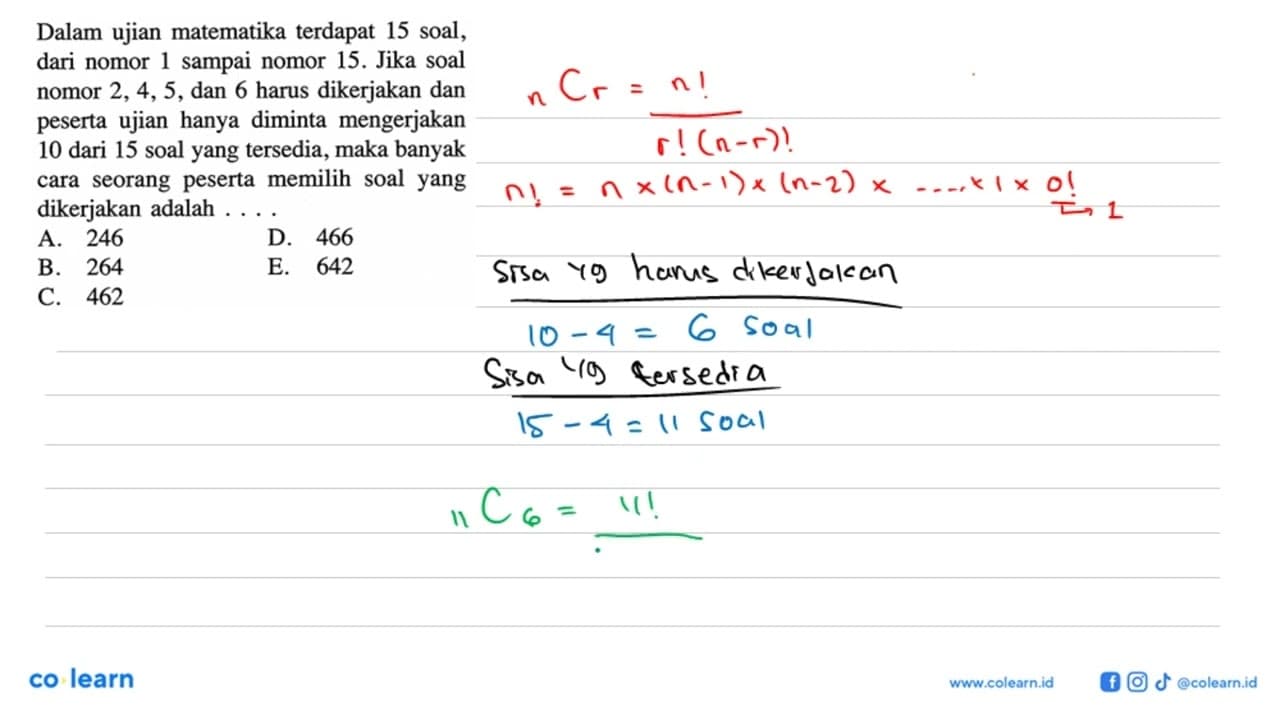 Dalam ujian matematika terdapat 15 soal,
dari nomor 1 sampai nomor 15. Jika soal
nomor 2, 4, 5, dan 6 harus dikerjakan dan
peserta ujian hanya diminta mengerjakan
10 dari 15 soal yang tersedia, maka banyak
cara seorang peserta memilih soal yang
dikerjakan adalah . . . .
A. 246 D. 466
B. 264 E. 642
C. 462
nCr = n!
r!(n-r)!
n! = n x (n-1) x (n-2) x ..... x 1 x 0!
↳ 1
Sisa yg harus dikerjakan
10 - 4 = 6 soal
Sisa yg tersedia
15 - 4 = 11 soal
11C6 = 11!
co learn
www.colearn.id @colearn.id